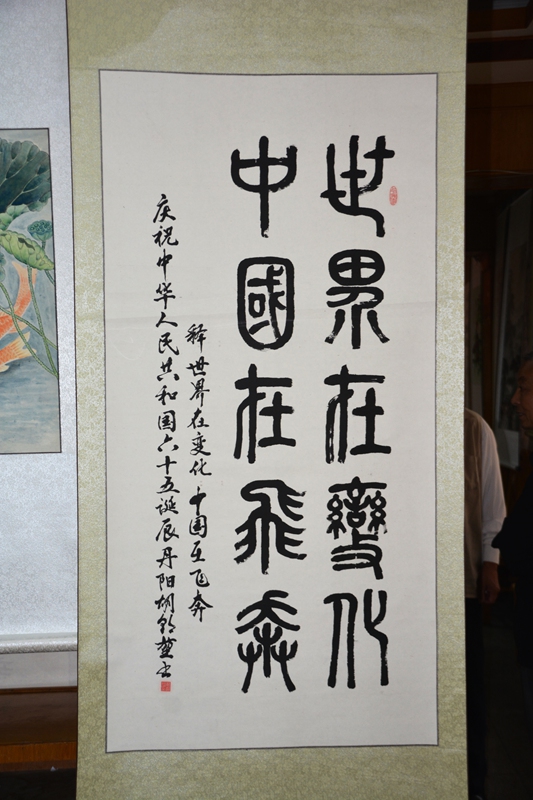 世界在變化
中國在飛奔
释世界在变化中国在飞奔
庆祝中华人民共和国六十五诞辰丹阳胡